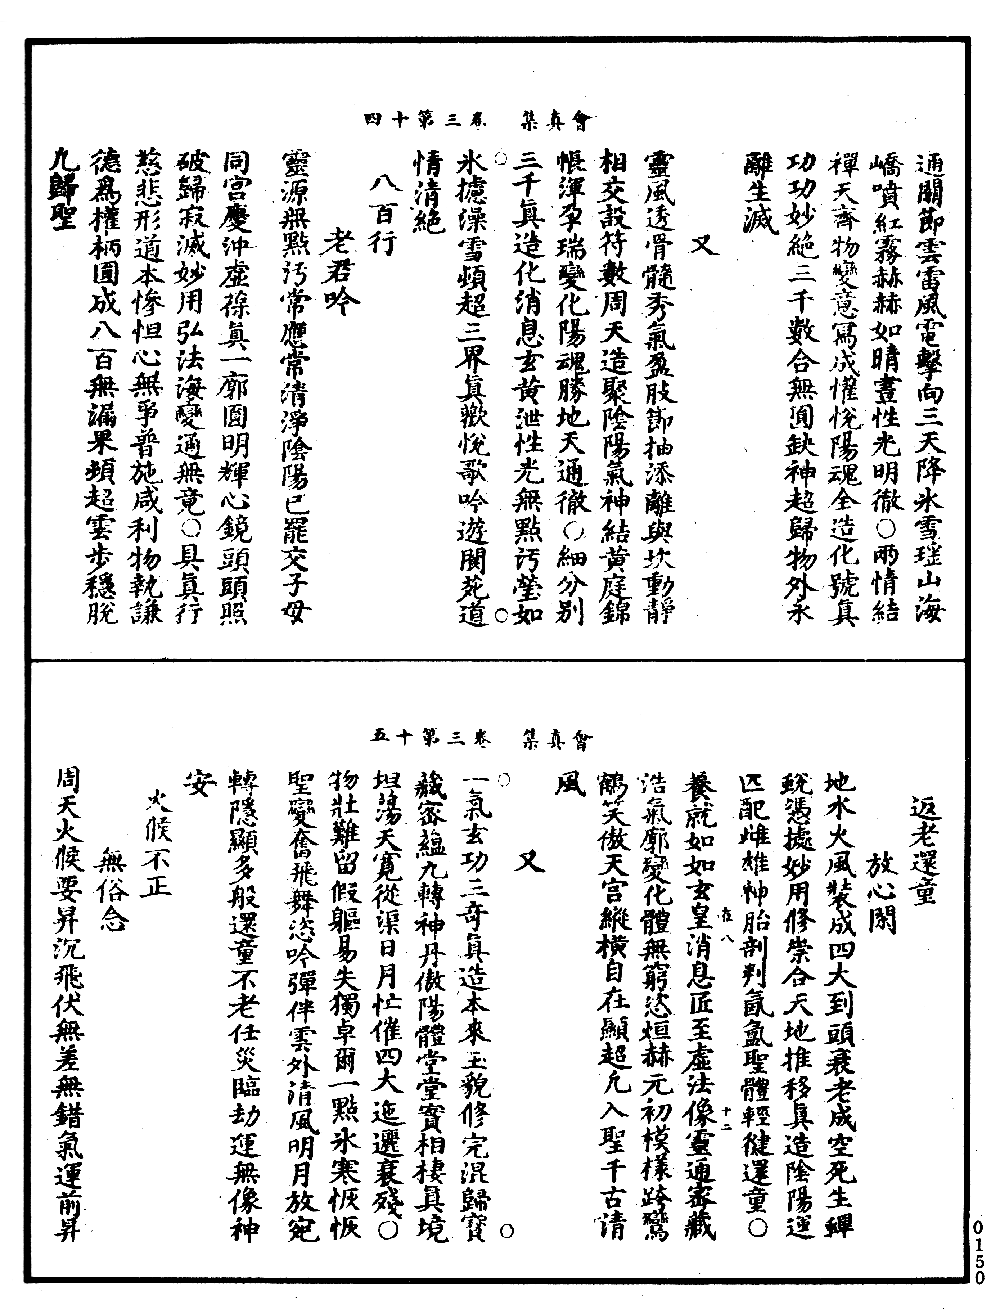 會真集　卷三第十四
通關節雲雷風電擊向三天降氷雪瑤山海
嶠噴紅霧赫赫如晴晝性光明徹〇兩情結
禪天齊物變意寫成懽悅陽魂全造化號真
功功妙絕三千數合無圓缺神超歸物外永
離生滅
又
靈風透骨髓秀氣盈肢節抽添離與坎動靜
相交設符數周天造聚陰陽氣神結黃庭錦
帳渾孕瑞變化陽魂勝地天通徹〇細分別
三千真造化消息玄黃泄性光無點污瑩如
氷摅澡雪頻超三界真歡悅歌吟遊閬苑道
情清絕
八百行
老君吟
靈源無點污常應常清淨陰陽已罷交子母
同宮慶沖虛葆真一廓圓明輝心鏡頭頭照
破歸寂滅妙用弘法海變通無竟〇具真行
慈悲形道本慘怛心無爭普施咸利物執謙
德為權柄圓成八百無漏果頻超雲步穩脫
凡歸聖
會真集　卷三第十五
返老還童
放心閑
地水火風裝成四大到頭衰老成空死生蟬
蛻憑據妙用修崇合天地推移真造陰陽運
匹配雌雄神胎剖判氤氳聖體輕健還童〇
養就如如玄皇消息匠至虛法像靈通密藏
浩氣廓變化體無窮恣烜赫元初模樣跨鸞
鶴笑傲天宮縱橫自在顯超凡入聖千古清
風
在八
十二
又
一氣玄功三奇真造本來玉貌修完混歸寶
藏密蘊九轉神丹傲陽體堂堂實相棲真境
坦蕩天寬從渠日月忙催四大迤邐衰殘〇
物壯難留假軀易失獨卓爾一點氷寒恢恢
聖變奮飛舞恣吟彈伴雲外清風明月放宛
轉隱顯多般還童不老任災臨劫運無像神
安
火候不正
無俗念
周天火候要昇沉飛伏無差無錯氣運前昇
0150